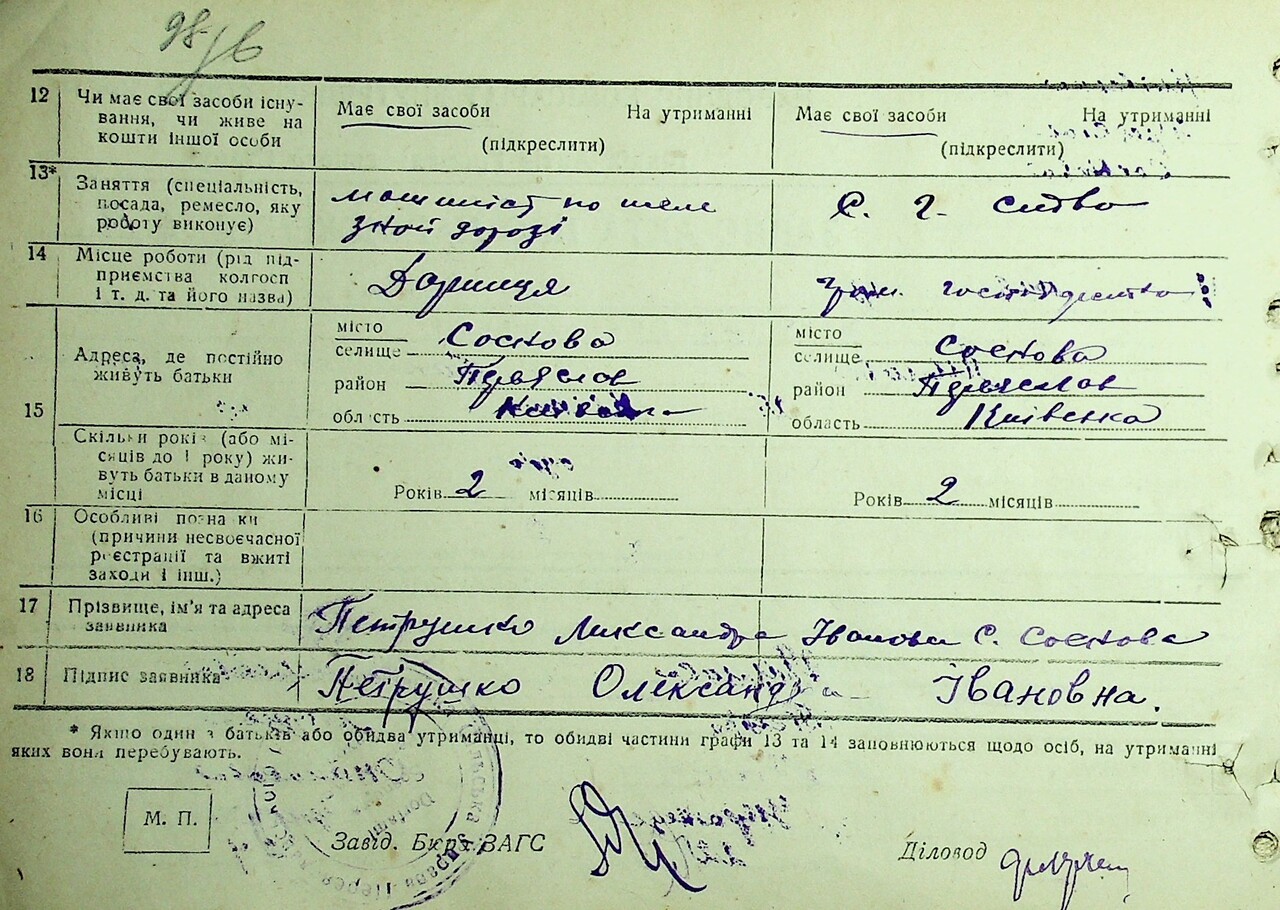 12 Чи має свої засоби існу- Має свої засоби На утриманні Має свої засоби На утриманні
вання, чи живе на
кошти іншої особи (підкреслити) (підкреслити)
13* Заняття (спеціальність,
посада, ремесло, яку машиніст по желе С. Г. ство
роботу виконує) зной дорозі
14 Місце роботи (рід під-
приємства колгосп Дарниця господарство
і т. д. та його назва)
15 місто місто
селище Соснова селище Соснова
Адреса, де постійно
живуть батьки район район
область область Київська
Скільки років (або мі-
сяців до 1 року) жи-
вуть батьки в даному Років 2 місяців Років 2 місяців
місці
16 Особливі познаки
(причини несвоєчасної
реєстрації та вжиті
заходи і інш.)
17 Прізвище, ім'я та адреса Петрушко Александра Іванова С. Соснова
заявника
18 Підпис заявника Петрушко Олександра Івановна.
* Якщо один з батьків або обидва утриманці, то обидві частини графи 13 та 14 заповнюються щодо осіб, на утриманні
яких вони перебувають.
М. П.
Завід. Бюро ЗАГС Діловод